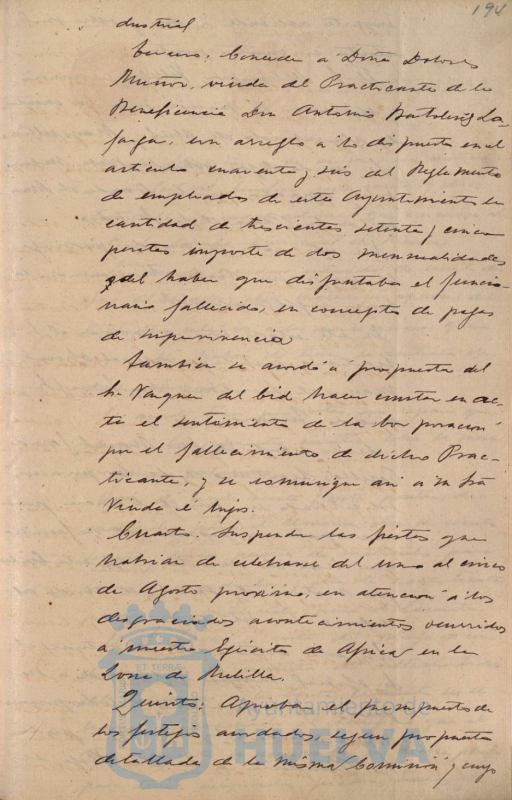 194
dustrial
Tercero: Conceder a Doña Dolores
Muñoz, viuda del Practicante de la
Beneficencia Don Antonio Bartolomé La-
farga, con arreglo a lo dispuesto en el
artículo cuarenta y seis del Reglamento
de empleados de este Ayuntamiento la
cantidad de trescientas setenta y cinco
pesetas importe de dos mensualidades
del haber que disfrutaba el funcio-
nario fallecido, en concepto de pagas
de supervivencia
También se acordó a propuesta del
Sr. Vazquez del Cid hacer constar en ac-
ta el sentimiento de la Corporación
por el fallecimiento de dicho Prac-
ticante, y se comunique así a su Sra
Viuda é hijos.
Cuarto: Suspender las fiestas que
habían de celebrarse del uno al cinco
de Agosto próximo, en atención a los
desgraciados acontecimientos ocurridos
a nuestro Ejército de Africa en la
zona de Melilla.
Quinto: Aprobar el presupuesto de
los festejos acordados, según propuesta
detallada de la misma Comisión y cuyo
ET TERRAE
Ayuntamiento de
HUELVA